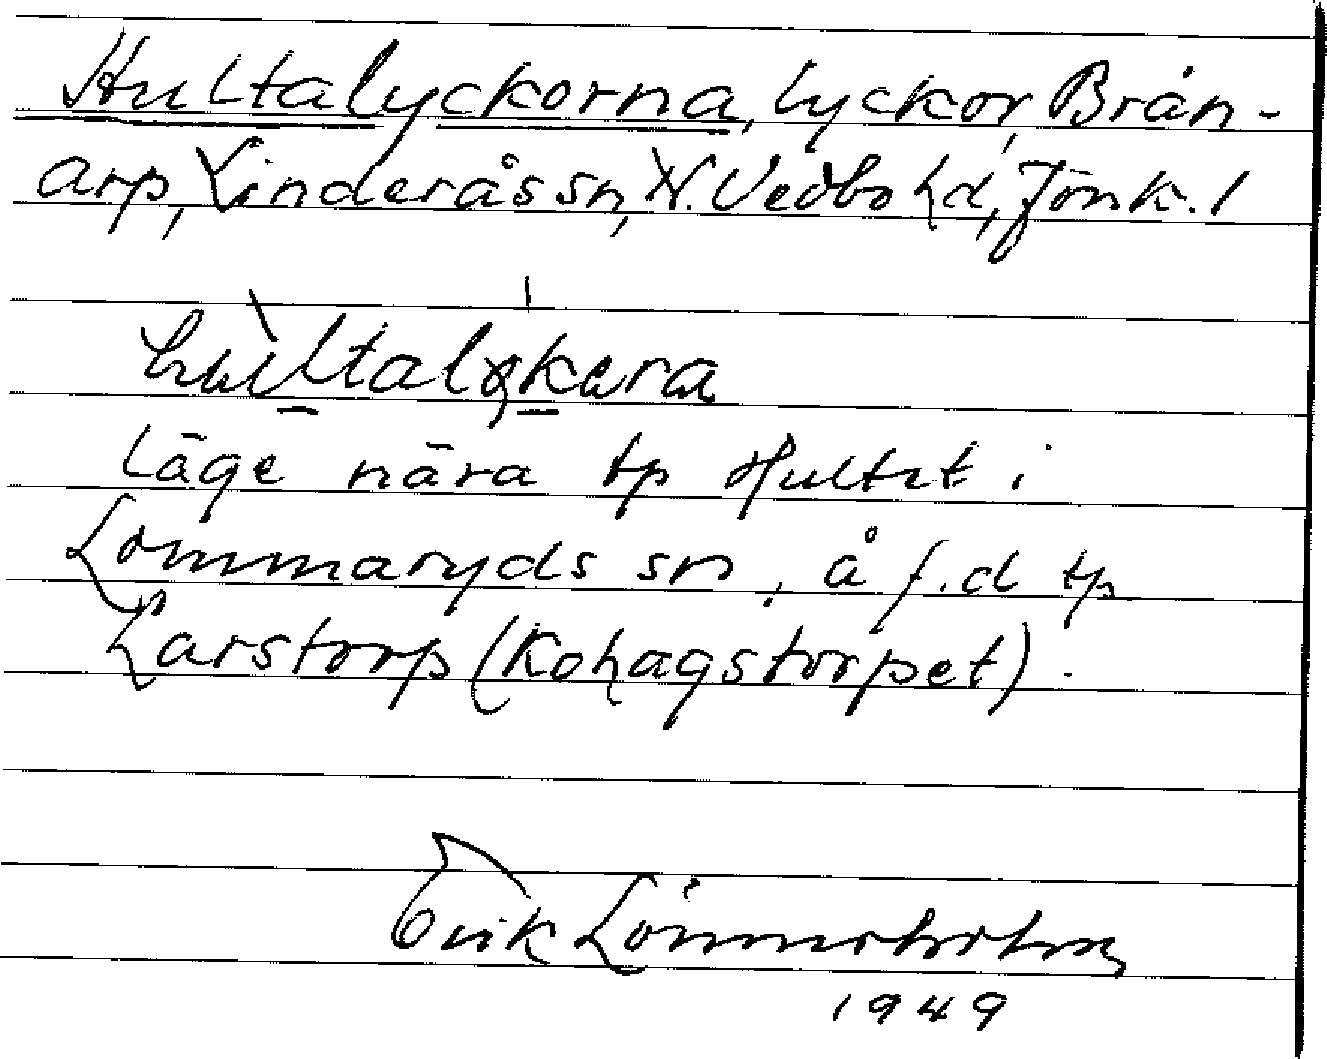 Hultalyckorna, lyckor, Brån-
arp, Linderås sn, N. Vedbo hd, Jönk. l
Läge nära tp Hultet i
Lommaryds sn, å f.d tp
Larstorp (Kohagstorpet).
Erik Lönnerholm
1949